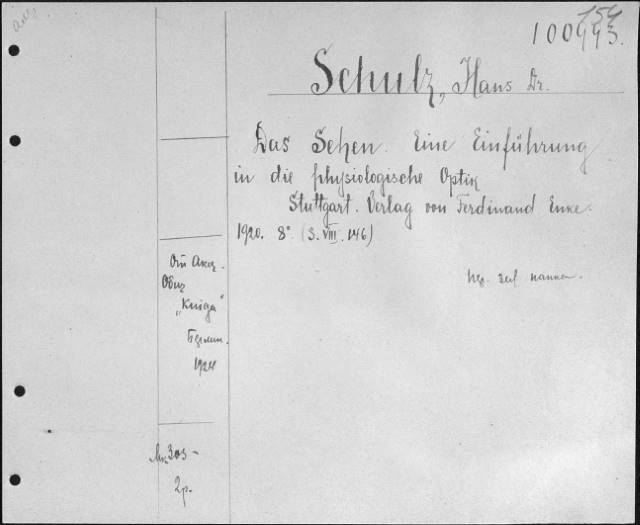 100993.
Schulz, Hans Dr.
Das Sehen. Eine Einführung
in die physiologische Optik
Stuttgart. Verlag von Ferdinand Enke.
1920. 8° (S. VIII. 146)
От Акц.
Общ
„Книга"
Берлин.
1924
303 -
2р.